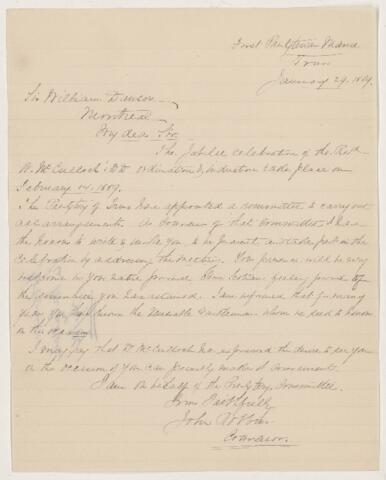 First Presbyterian Manse
Truro
January 29. 1889.
Sir William Dawson
Montreal
My dear Sir
The Jubilee celebration of the Revd
W. McCulloch's DD ordination & induction takes place on
February 14. 1889.
The Presbytery of Truro has appointed a committee to carry out
all arrangements. As Convener of that Committee, I have
the honor to write & invite you to be present, and take part in the
celebration by addressing the meeting. Your presence will be very
welcome in your native province. Nova Scotians feeling proud of
the you have attained. I am informed that for many
years you have known the Venerable Gentleman whom we seek to honor
on the occasion
I may say that Dr McCulloch has expressed the desire to see you
on the occasion if you can possibly make it convenient.
I am On behalf of the Presbytery's Committee.
Yours Faithfully
John Robbins
Convener.